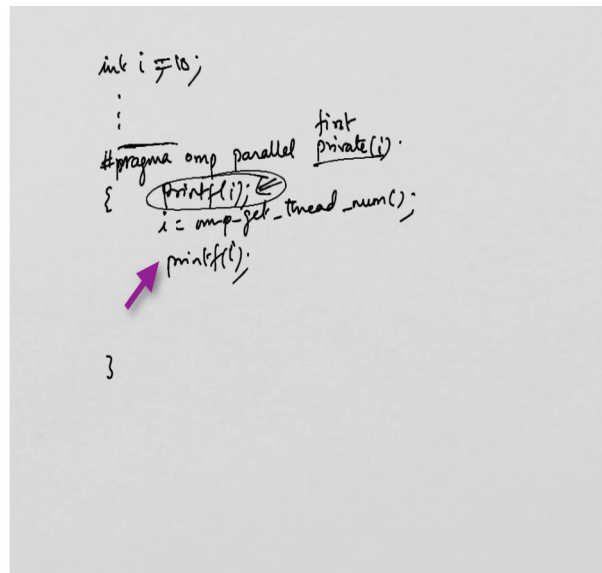 int i = 10;
:
:
first
#pragma omp parallel private(i).
{ printf(i);
i = omp_get_thread_num();
printf(i);
}